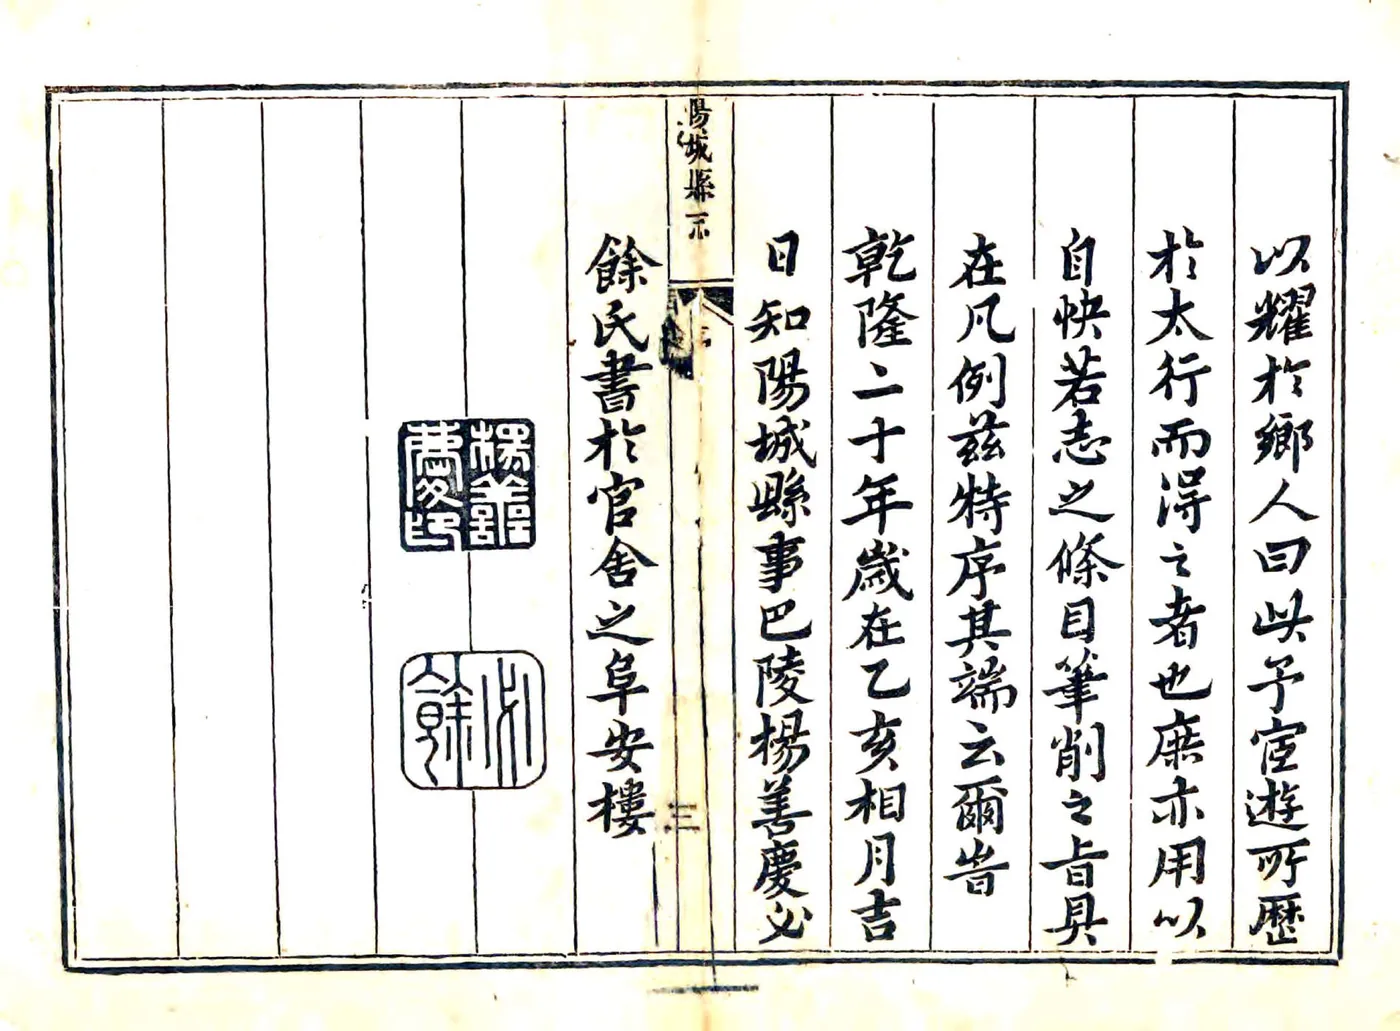 以耀於鄉人曰此予宦遊所歷
於太行而得之者也庶亦用以
自快若志之條目筆削之旨具
在凡例茲特序其端云爾旹
乾隆二十年歲在乙亥相月吉
日知陽城縣事巴陵楊善慶必
餘氏書於官舍之阜安樓
陽城縣志
三
楊善慶印
必餘